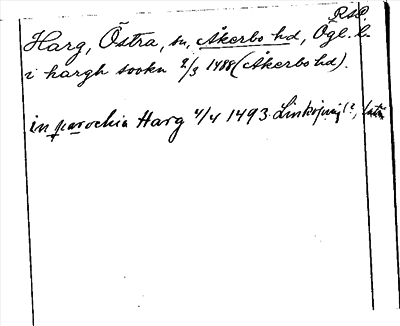 RAP.
Harg, Östra, sn, Åkerbo hd, Ögl. l.
i hargh sookn 2/3 1488 (Åkerbo hd).
in parochia Harg 4/4 1493 Linköping (?,